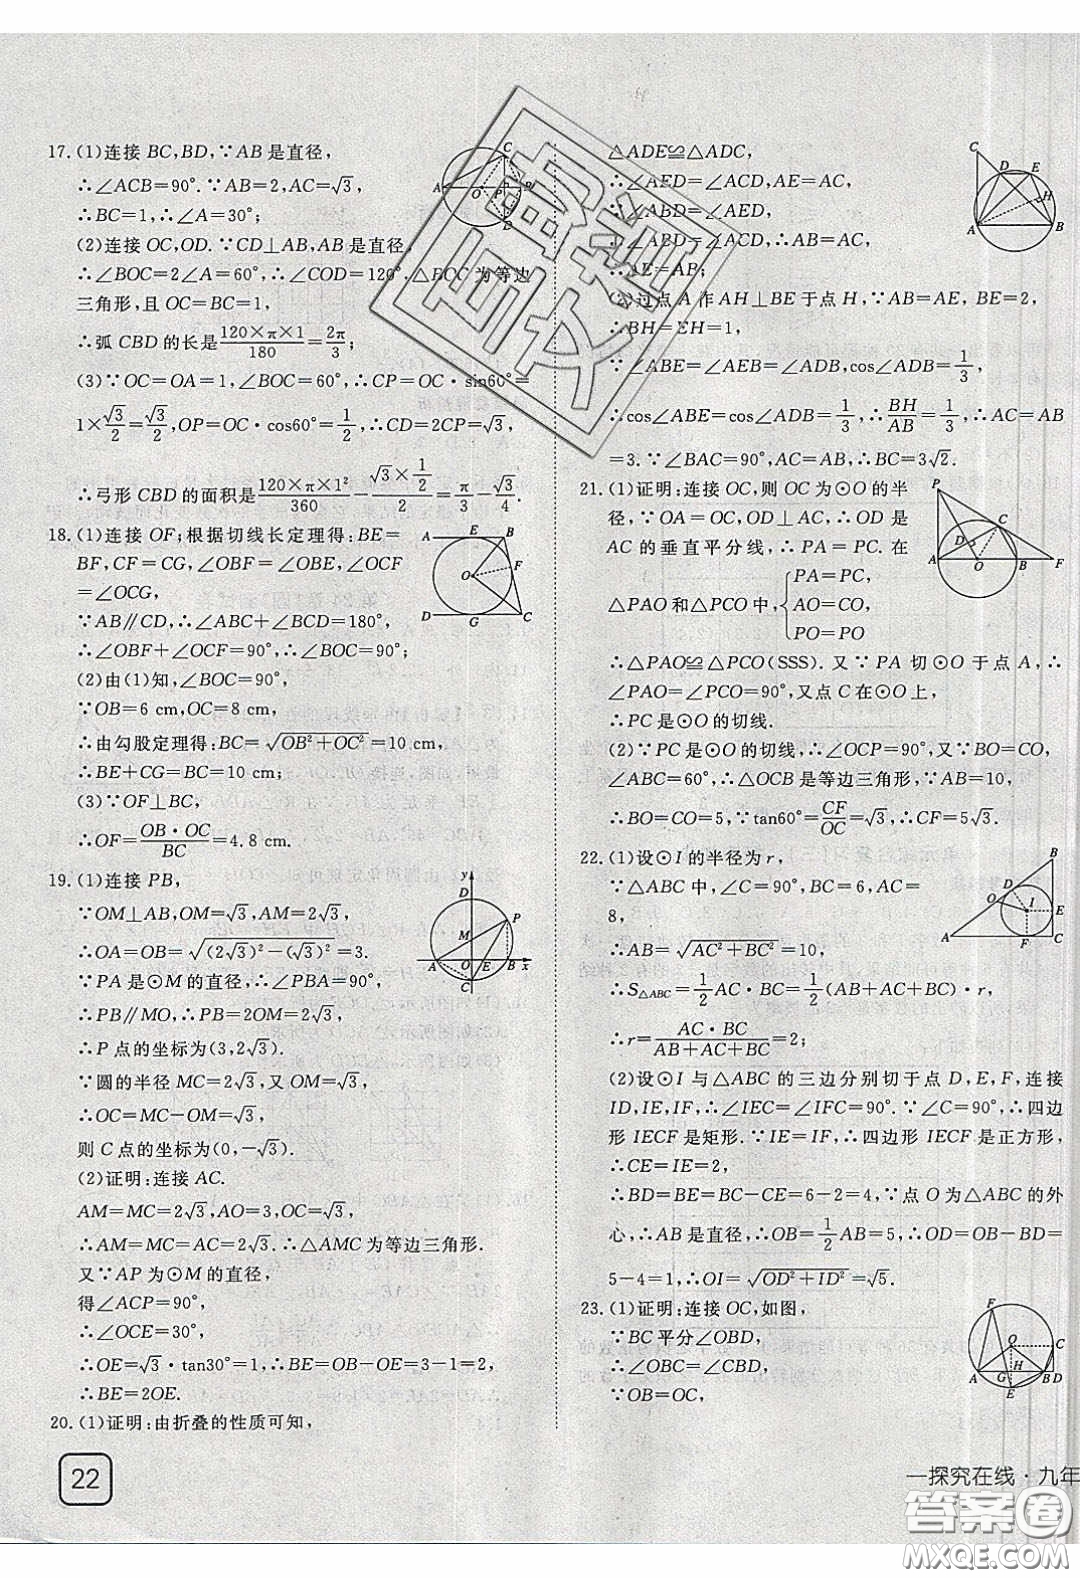 17. (1)连接 BC,BD,∵AB 是直径,
∴∠ACB=90°.∵AB=2,AC=√3,
∴BC=1,∴∠A=30°;
(2)连接 OC,OD.∵CD⊥AB,AB 是直径,
∴∠BOC=2∠A=60°,∴∠COD=120°,△BOC 为等边
三角形,且 OC=BC=1,
∴弧 CBD 的长是 (120×π×1)/180=2π/3;
(3)∵OC=OA=1,∠BOC=60°,∴CP=OC·sin60°=
1×√3/2=√3/2,OP=OC·cos60°=1/2,∴CD=2CP=√3,
∴弓形 CBD 的面积是 (120×π×1²)/360-(√3×1/2)/2=π/3-√3/4.
18. (1)连接 OF;根据切线长定理得:BE=
BF,CF=CG,∠OBF=∠OBE,∠OCF
=∠OCG,
∵AB∥CD,∴∠ABC+∠BCD=180°,
∴∠OBF+∠OCF=90°,∴∠BOC=90°;
(2)由(1)知,∠BOC=90°,
∵OB=6 cm,OC=8 cm,
∴由勾股定理得:BC=√(OB²+OC²)=10 cm,
∴BE+CG=BC=10 cm;
(3)∵OF⊥BC,
∴OF=(OB·OC)/BC=4.8 cm.
19. (1)连接 PB,
∵OM⊥AB,OM=√3,AM=2√3,
∴OA=OB=√((2√3)²-(√3)²)=3.
∵PA 是⊙M 的直径,∴∠PBA=90°.
∴PB∥MO,∴PB=2OM=2√3,
∴P 点的坐标为(3,2√3).
∵圆的半径 MC=2√3,又 OM=√3,
∴OC=MC-OM=√3,
则 C 点的坐标为(0,-√3).
(2)证明:连接 AC.
AM=MC=2√3,AO=3,OC=√3,
∴AM=MC=AC=2√3.∴△AMC 为等边三角形.
又∵AP 为⊙M 的直径,
得∠ACP=90°,
∴∠OCE=30°,
∴OE=√3·tan30°=1,∴BE=OB-OE=3-1=2,
∴BE=2OE.
20. (1)证明:由折叠的性质可知,
22
△ADE≌△ADC,
∴∠AED=∠ACD,AE=AC,
∵∠ABD=∠AED,
∴AE=AB;
(2)过点 A 作 AH⊥BE于点 H,∵AB=AE,BE=2,
∴BH=EH=1,
∵∠ABE=∠AEB=∠ADB,cos∠ADB=1/3,
∴cos∠ABE=cos∠ADB=1/3,∴BH/AB=1/3,∴AC=AB
=3.∵∠BAC=90°,AC=AB,∴BC=3√2.
21. (1)证明:连接 OC,则 OC 为⊙O 的半
径,∵OA=OC,OD⊥AC,∴OD 是
AC 的垂直平分线,∴PA=PC.在
△PAO 和△PCO 中, { PA=PC,
AO=CO,
PO=PO
∴△PAO≌△PCO(SSS).又∵PA 切⊙O 于点 A,∴
∠PAO=∠PCO=90°,又点 C 在⊙O 上,
∴PC 是⊙O 的切线.
(2)∵PC 是⊙O 的切线,∴∠OCP=90°,又∵BO=CO,
∠ABC=60°,∴△OCB 是等边三角形,∵AB=10,
∴BO=CO=5,∵tan60°=CF/OC=√3,∴CF=5√3.
22. (1)设⊙I 的半径为 r,
∵△ABC 中,∠C=90°,BC=6,AC=
8,
∴AB=√(AC²+BC²)=10,
∴S△ABC=1/2 AC·BC=1/2(AB+AC+BC)·r,
∴r=(AC·BC)/(AB+AC+BC)=2;
(2)设⊙I 与△ABC 的三边分别切于点 D,E,F,连接
ID,IE,IF,∴∠IEC=∠IFC=90°.∵∠C=90°,∴四边
形 IECF 是矩形.∵IE=IF,∴四边形 IECF 是正方形,
∴CE=IE=2,
∴BD=BE=BC-CE=6-2=4,∵点 O 为△ABC 的外
心,∴AB 是直径,∴OB=1/2 AB=5,∴OD=OB-BD=
5-4=1,∴OI=√(OD²+ID²)=√5.
23. (1)证明:连接 OC,如图,
∵BC 平分∠OBD,
∴∠OBC=∠CBD,
∵OB=OC,
一探究在线·九年
答案圈
MXQE.COM